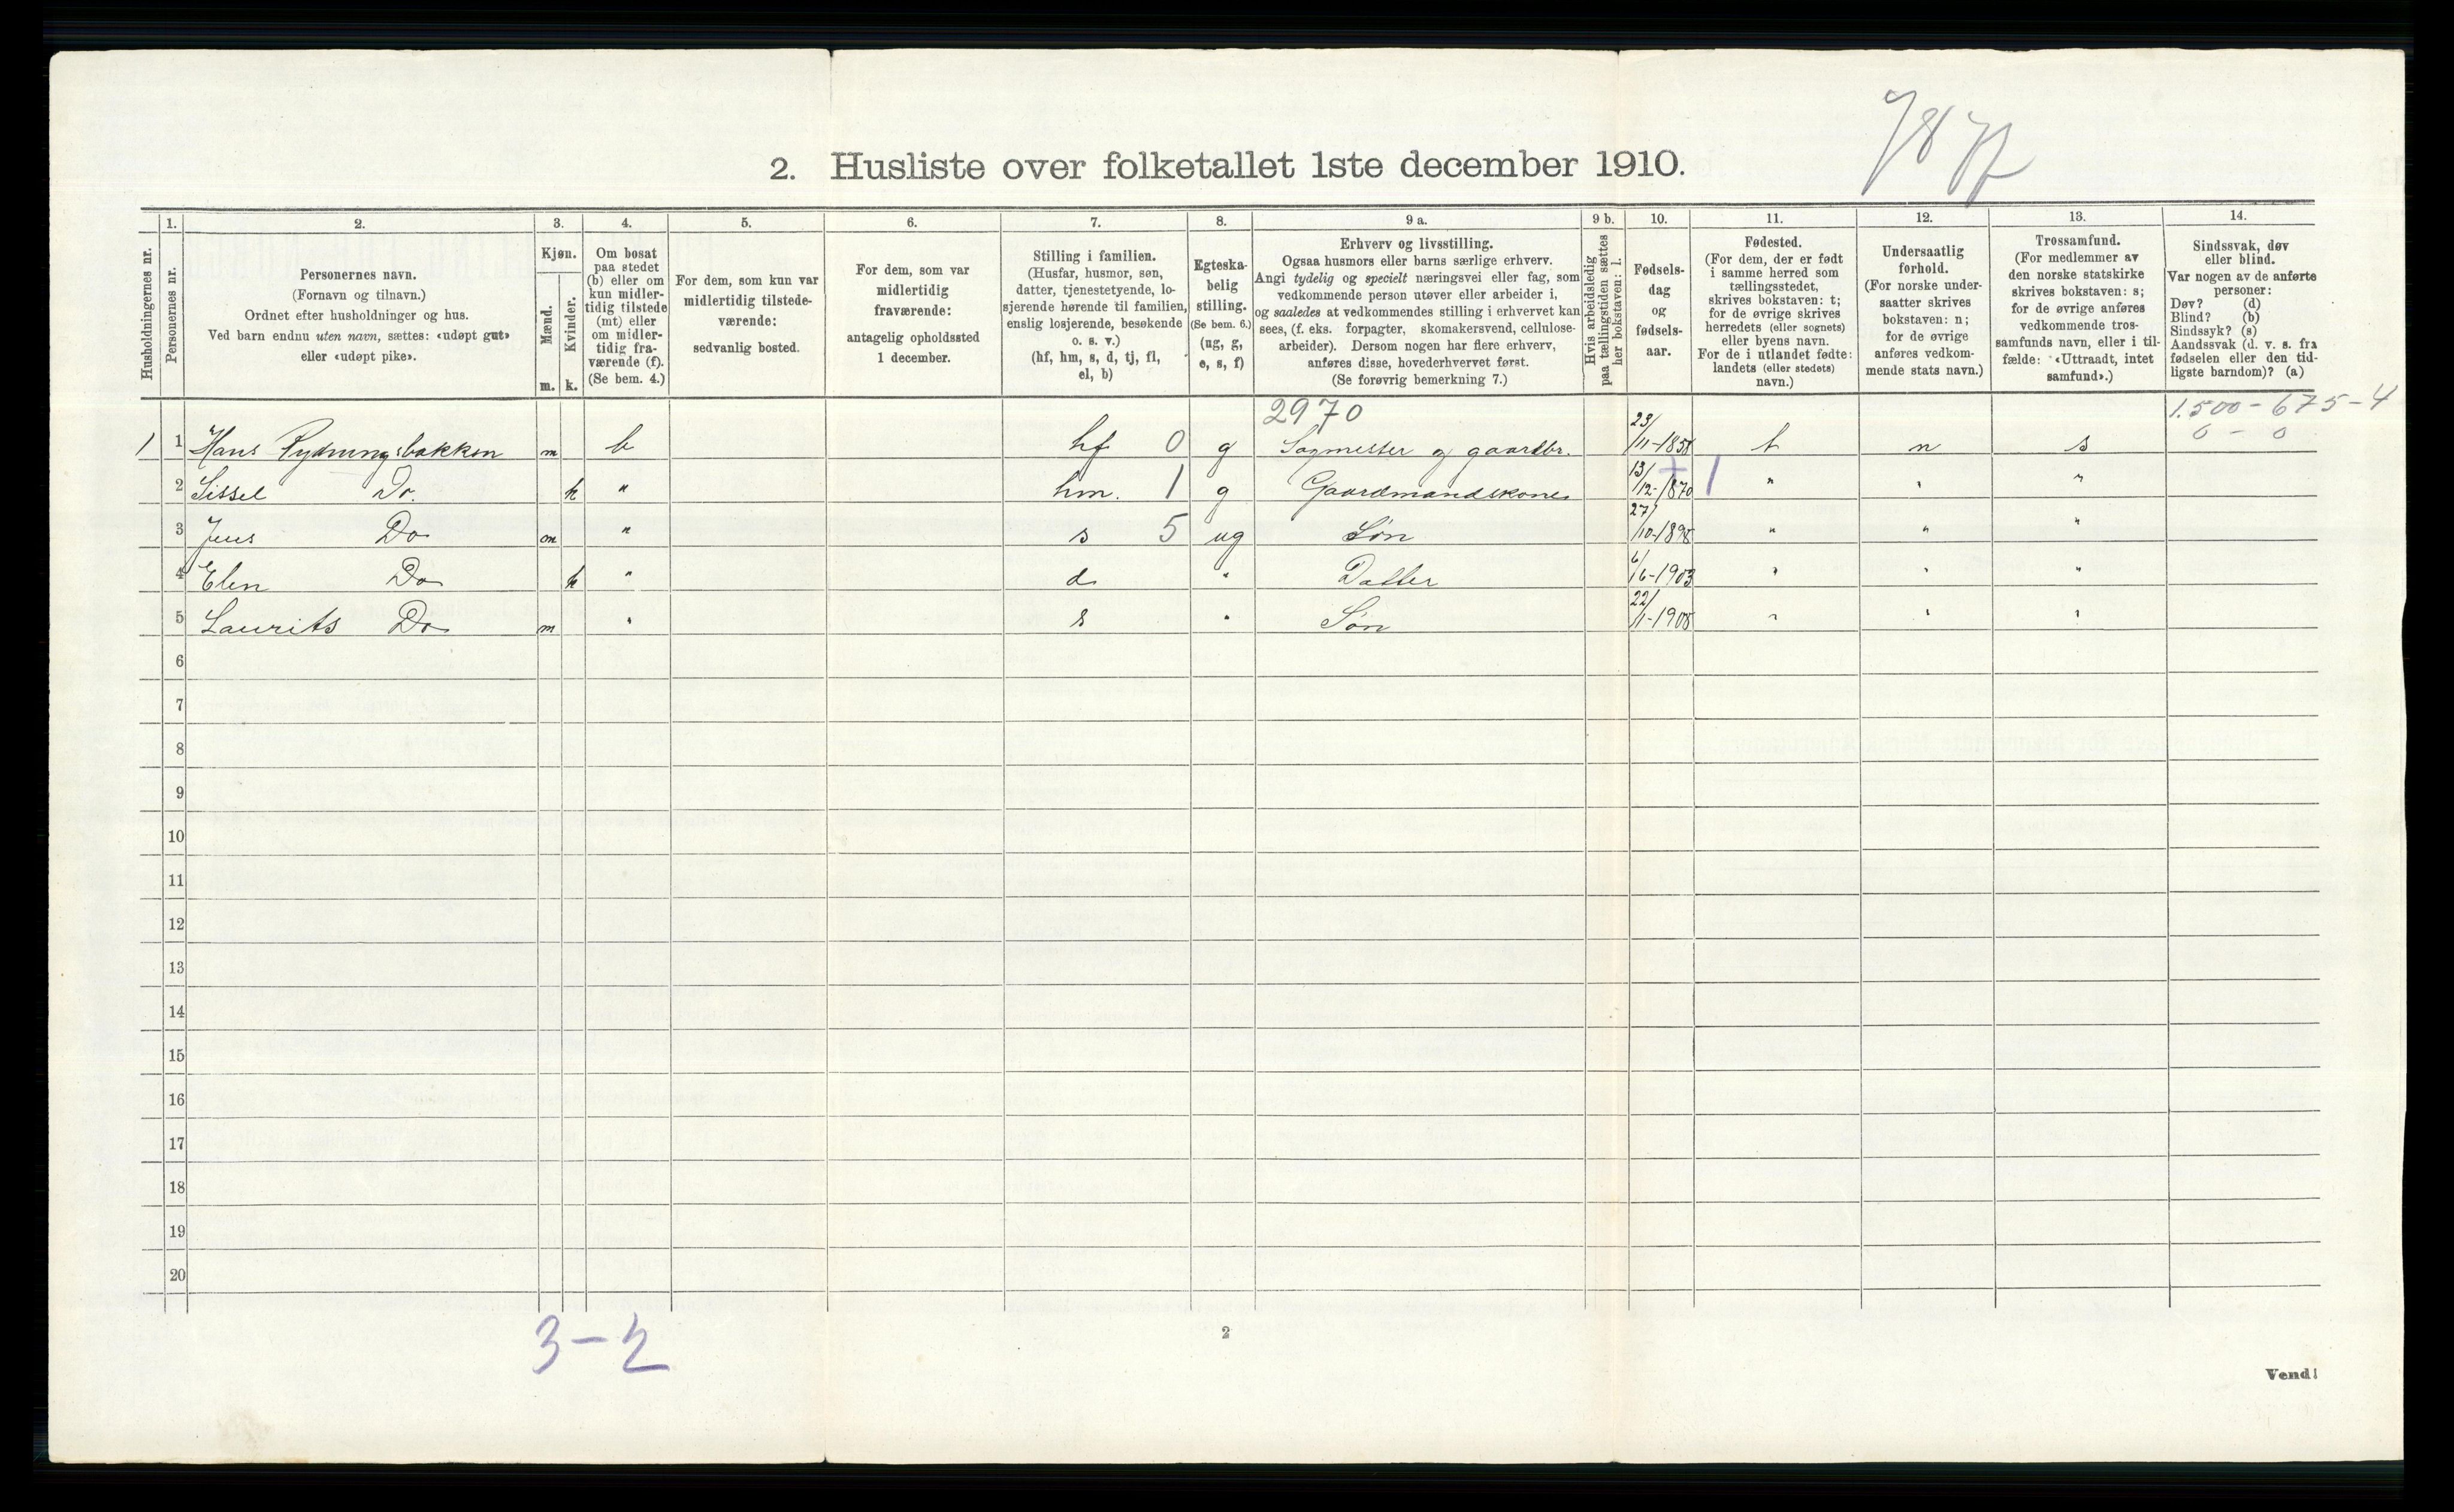 2. Husliste over folketallet 1ste december 1910.
Husholdningernes nr.
1.
Personernes nr.
2.
Personernes navn.
(Fornavn og tilnavn.)
Ordnet efter husholdninger og hus.
Ved barn endnu uten navn, sættes: «udøpt gut»
eller «udøpt pike».
3.
Kjøn.
Mænd.
Kvinder.
m. k.
4.
Om bosat
paa stedet
(b) eller om
kun midler-
tidig tilstede
(mt) eller
om midler-
tidig fra-
værende (f).
(Se bem. 4.)
5.
For dem, som kun var
midlertidig tilstede-
værende:
sedvanlig bosted.
6.
For dem, som var
midlertidig
fraværende:
antagelig opholdssted
1 december.
7.
Stilling i familien.
(Husfar, husmor, søn,
datter, tjenestetyende, lo-
sjerende hørende til familien,
enslig losjerende, besøkende
o. s. v.)
(hf, hm, s, d, tj, fl,
el, b)
8.
Egteska-
belig
stilling.
(Se bem. 6.)
(ug, g,
e, s, f)
9 a.
Erhverv og livsstilling.
Ogsaa husmors eller barns særlige erhverv.
Angi tydelig og specielt næringsvei eller fag, som
vedkommende person utøver eller arbeider i,
og saaledes at vedkommendes stilling i erhvervet kan
sees, (f. eks. forpagter, skomakersvend, cellulose-
arbeider). Dersom nogen har flere erhverv,
anføres disse, hovederhvervet først.
(Se forøvrig bemerkning 7.)
9 b.
Hvis arbeidsledig
paa tællingstiden sættes
her bokstaven: l.
10.
Fødsels-
dag
og
fødsels-
aar.
11.
Fødested.
(For dem, der er født
i samme herred som
tællingsstedet,
skrives bokstaven: t;
for de øvrige skrives
herredets (eller sognets)
eller byens navn.
For de i utlandet fødte:
landets (eller stedets)
navn.)
12.
Undersaatlig
forhold.
(For norske under-
saatter skrives
bokstaven: n;
for de øvrige
anføres vedkom-
mende stats navn.)
13.
Trossamfund.
(For medlemmer av
den norske statskirke
skrives bokstaven: s;
for de øvrige anføres
vedkommende tros-
samfunds navn, eller i til-
fælde: «Uttraadt, intet
samfund».)
14.
Sindssvak, døv
eller blind.
Var nogen av de anførte
personer:
Døv? (d)
Blind? (b)
Sindssyk? (s)
Aandssvak (d. v. s. fra
fødselen eller den tid-
ligste barndom)? (a)
2970 1.500 - 675 - 4
0 - 0
1 1 Hans Rydningsbakken m b hf 0 g Sagmester og gaardbr. 23/11-1858 t n s
2 Sissel Do. k " hm. 1 g Gaardmandskone 13/12-1870 1 " " "
3 Jens Do m " s 5 ug Søn 27/10-1898 " " "
4 Elen Do k " d " Datter 6/6-1903 " " "
5 Laurits Do m " s " Søn 22/11-1908 " " "
6
7
8
9
10
11
12
13
14
15
16
17
18
19
20
3-2
2
Vend!